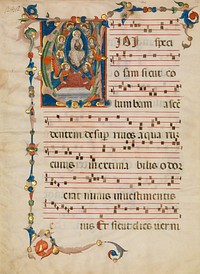 VIDI speci
osam sicut co
lumbam ascen
dentem desuper rivos aqua rum
cuius inextima bilis odor
erat nimis in vestimentis
eius Et sicut dies verni